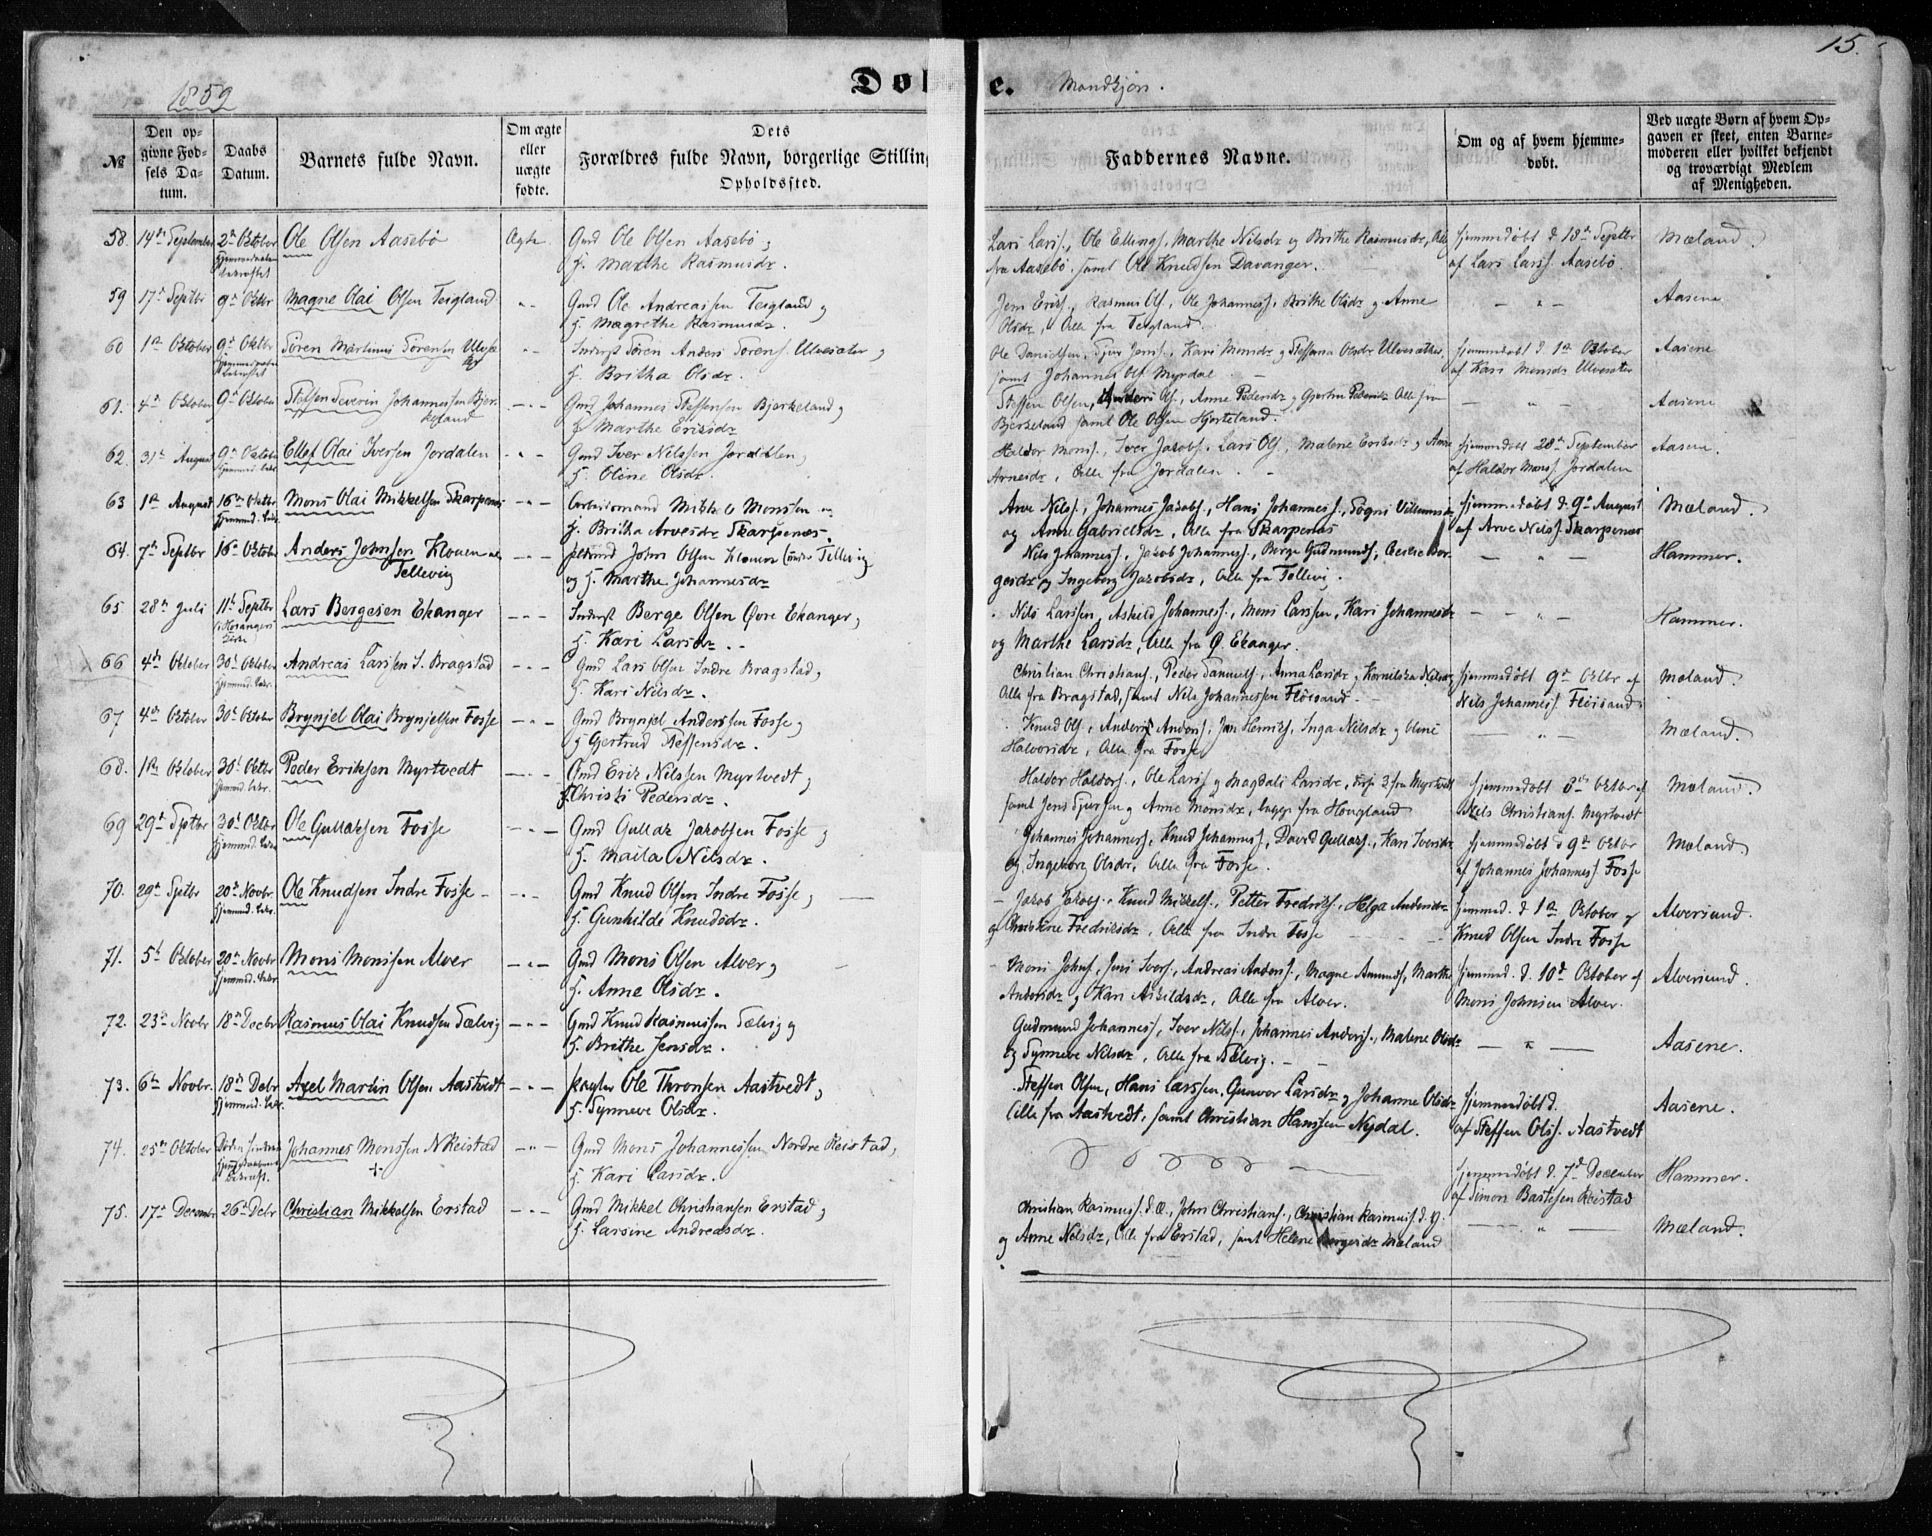 15.
1859
Døb
e.
Mandkjøn.
No
Den op-
givne Fød-
sels Da-
tum.
Daabs
Datum.
Barnets fulde Navn.
Om ægte
eller
uægte
fødte.
Dets
Forældres fulde Navn, borgerlige Stilling
Opholdssted.
Faddernes Navne.
Om og af hvem hjemme-
døbt.
Ved uægte Børn af hvem Op-
gaven er skeet, enten Barne-
moderen eller hvilket bekjendt
og troværdigt Medlem
af Menigheden.
58. 14de September 2den Oktober Ole Olsen Aasebø Ægte Gmd Ole Olsen Aasebø, Lars Larss., Ole Ellings., Marthe Nilsdr og Brithe Rasmusdr, Alle hjemmedøbt d 18de Septbr Mæland.
H. Marthe Rasmusdr. fra Aasebø, samt Ole Knudsen Davanger. af Lars Larss. Aasebø.
59 17de Septbr 9de Oktbr Magne Olai Olsen Teigland Gmd Ole Andreassen Teigland og Jens Erics., Rasmus Ols., Ole Johanness., Brithe Olsdr og Anne Aasene
H. Magrethe Rasmusdr. Olsdr, Alle fra Teigland.
60 1ste Oktober 9de Oktbr Søren Martinus Sørensen Søren Anders Sørens. Ulvesæter og Ole Danielsen, Kari Monsdr og Steffana Olsdr Ulvesæther, hjemmedøbt d. 1ste Oktober Aasene
H. Britha Olsdr. samt Johannes Ols. Myrdal af Kari Monsdr Ulvesæter
61. 4de Oktober 9de Oktober Steffen Severin Johannessen Bjør- Gmd Johannes Steffensen Bjørkeland og Steffen Olsen, Anders Ols., Anne Pedersdr og Gjertru Pedersdr Alle fra Aasene
keland H. Marthe Ericsdr Bjerkeland samt Ole Olsen Hjorteland.
62. 31te August 9de Oktober Ellef Olai Iversen Jordalen Gmd Iver Nilssen Jordalen, Haldor Mons., Iver Jacobs., Lars Ols., Malene Eriksdr og Anne hjemmedøbt 28de September Aasene.
H. Oline Olsdr. Arnesdr, Alle fra Jordalen. af Haldor Monss. Jordalen
63 1ste August 16de Oktbr Mons Olai Mikkelsen Skarpenes Arbeidsmand Mikkel Monssen og Arve Nilss., Johannes Jacobs., Hans Johanness., Sogni Villumsdr hjemmedøbt d. 9de August Mæland.
H. Britha Arvesdr Skarpenes. og Anne Gabrielsdr, Alle fra Skarpenes af Arve Nilss. Skarpenes
64. 7de Septbr 16de Oktober Anders Johnsen Klouen John Olsen Klouen under Tellevig Nils Johanness., Jakob Johanness., Berge Gudmunds., Hammer.
Tellevig og H. Marthe Johannesdr gesdr og Ingeborg Jacobsdr, Alle fra Tellevi.
65. 28de Juli 11te Septbr Lars Bergesen Ekanger Berge Olsen Øvre Ekanger, Nils Larssen, Askild Johanness., Mons Larssen, Kari Johannesdr Hammer.
H. Kari Larsdr. og Marthe Larsdr, Alle fra Ø. Ekanger.
66 4de Oktober 30te Oktober Andreas Larssen I. Bragstad Gmd Lars Olsen Indre Bragstad, Christian Christians., Peder Samuels., Anna Larsdr og Kornelska Nilsdr, hjemmedøbt 9de Oktbr af Mæland.
H. Kari Nilsdr. Alle fra Bragstad, samt Nils Johannessen Fløisand. Nils Johanness. Fløisand
67 4de Oktober 30te Oktober Brynjel Olai Brynjelsen Fosse Gmd Brynjel Anderssen Fosse, Knud Ols., Anders Anders., Inga Nilsdr og Oline Mæland.
H. Gjertrud Steffensdr. Halvorsdr, Alle fra Fosse
68. 1ste Oktober 30te Oktbr Peder Eriksen Myrtvedt Gmd Eric Nilssen Myrtvedt, Haldor Haldors., Ole Larss. og Magdali Larsdr, disse 3 fra Myrtvedt, hjemmedøbt 8de Oktbr af Mæland.
H. Christi Pedersdr. samt Jens Sjursen og Anne Monsdr, begge fra Hougland Nils Christians. Myrtvedt
69 29de Septbr 30te Oktbr Ole Gullaksen Fosse Gmd Gullak Jakobsen Fosse og Johannes Johanness., Knud Johanness., David Gullaks., Kari Iversdr hjemmedøbt d 9de Oktbr Mæland.
H. Maila Nilsdr. og Ingeborg Olsdr, Alle fra Fosse. af Johannes Johanness. Fosse
70. 29de Septbr 20de Novbr Ole Knudsen Indre Fosse Gmd Knud Olsen Indre Fosse, Jakob Jakobs., Knud Mikkels., Petter Fredriks., Helga Andersdr hjemmed. d. 1ste Oktober af Alversund.
H. Gunhilde Knudsdr. og Christine Fredriksdr, Alle fra Indre Fosse Knud Olsen Indre Fosse
71. 5te Oktober 20de Novbr Mons Monssen Alver Gmd Mons Olsen Alver, Mons Johns., Jens Ivers., Andreas Anders., Magne Amunds., Marthe hjemmed. d. 10de Oktober af Alversund.
H. Anne Olsdr. Andersdr og Kari Askildsdr, Alle fra Alver. Mons Johnsen Alver.
72. 23de Novbr 18de Decbr Rasmus Olai Knudsen Sælvig Gmd Knud Rasmussen Sælvig og Gudmund Johanness., Iver Nilss., Johannes Anders., Malene Olsdr Aasene.
H. Brithe Jensdr. og Synneve Nilsdr, Alle fra Sælvig.
73. 6te Novbr. 18de Debr Axel Martin Olsen Aastvedt Ole Thronsen Aastvedt, Steffen Olsen, Hans Larssen, Gunvor Larsdr og Johanne Olsdr hjemmedøbt d. Aasene.
H. Synneve Olsdr. Alle fra Aastvedt, samt Christian Hanssen Nydal. af Steffen Ols. Aastvedt
74. 25de Oktober Johannes Monssen N. Reistad Gmd Mons Johannessen Nordre Reistad, hjemmedøbt d. 7de December Hammer.
H. Kari Larsdr. af Simon Bastesen Reistad
75. 17de Decembr 26de Debr Christian Mikkelsen Erstad Gmd Mikkel Christiansen Erstad, Christian Rasmuss. d. Æ., John Christians., Christian Rasmuss. d. Y. Mæland.
H. Larsine Andreasdr. og Anne Nilsdr, Alle fra Erstad, samt Helene Bergesdr Mæland